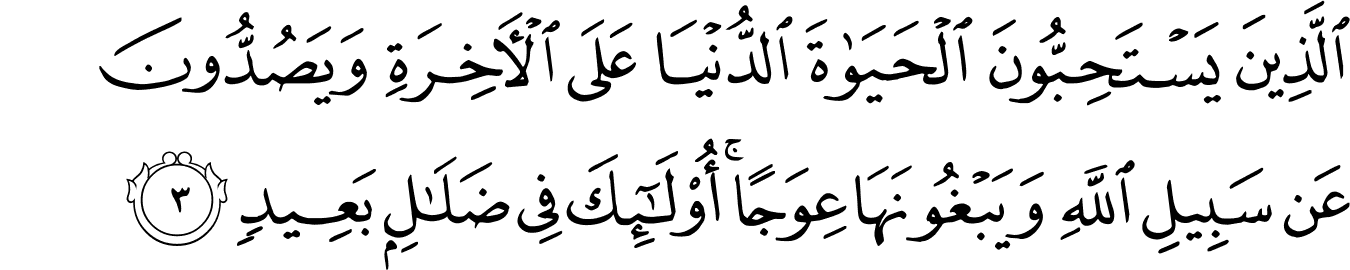 ٱلَّذِينَ يَسۡتَحِبُّونَ ٱلۡحَيَوٰةَ ٱلدُّنۡيَا عَلَى ٱلۡأٓخِرَةِ وَيَصُدُّونَ
عَن سَبِيلِ ٱللَّهِ وَيَبۡغُونَهَا عِوَجًاۚ أُوْلَٰٓئِكَ فِي ضَلَٰلِۭ بَعِيدٖ ٣